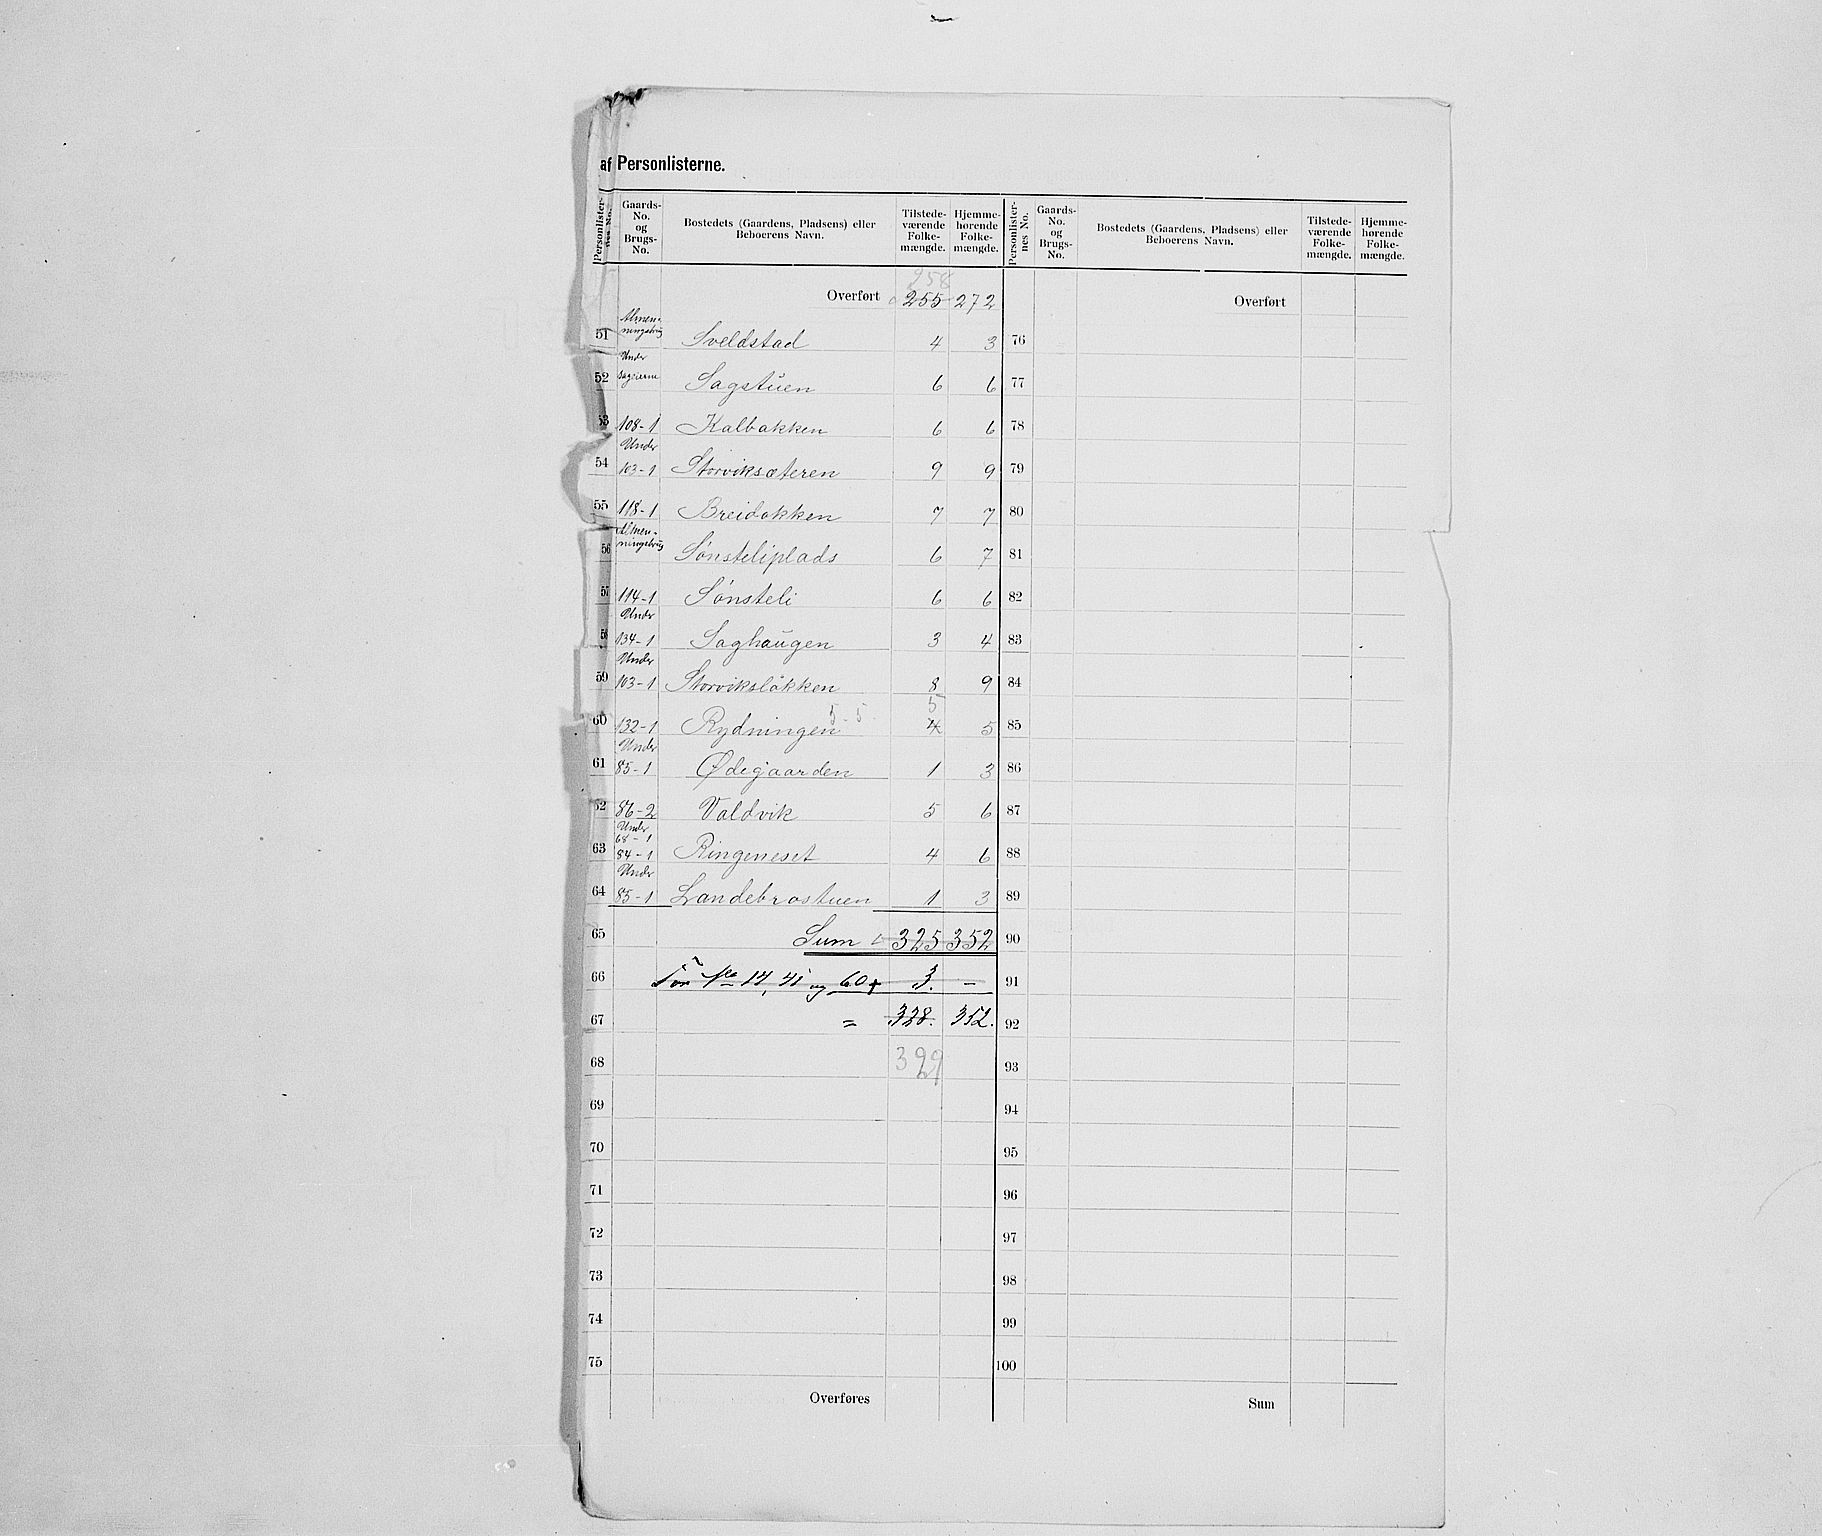 af Personlisterne.
Personlister-nes No. | Gaards-No. og Brugs-No. | Bostedets (Gaardens, Pladsens) eller Beboerens Navn. | Tilstede-værende Folke-mængde. | Hjemme-hørende Folke-mængde. | Personlister-nes No. | Gaards-No. og Brugs-No. | Bostedets (Gaardens, Pladsens) eller Beboerens Navn. | Tilstede-værende Folke-mængde. | Hjemme-hørende Folke-mængde.
258
Overført 255 272 Overført
51 Almen-ningsbrug Sveldstad 4 3 76
52 Under Sageierne Sagstuen 6 6 77
53 108-1 Kalbakken 6 6 78
54 Under 103-1 Storviksæteren 9 9 79
55 118-1 Breidakken 7 7 80
56 Almen-ningsbrug Sønsteliplads 6 7 81
57 114-1 Sønsteli 6 6 82
58 Under 134-1 Saghaugen 3 4 83
59 Under 103-1 Storvikslökken 8 9 84
60 132-1 Rydningen 5-5. 4 5 5 85
61 Under 85-1 Ødegaarden 1 3 86
62 86-2 Valdvik 5 6 87
63 Under 68-1 84-1 Ringeneset 4 6 88
64 Under 85-1 Landebrostuen 1 3 89
65 Sum 325 352 90
66 For No 14, 41 og 60 + 3. — 91
67 = 328. 352. 92
68 329 93
69 94
70 95
71 96
72 97
73 98
74 99
75 100
Overføres Sum